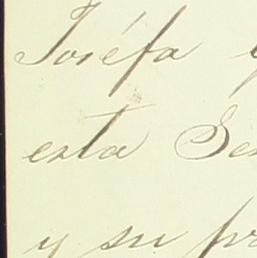 Joséfa
esta Se
y su pr